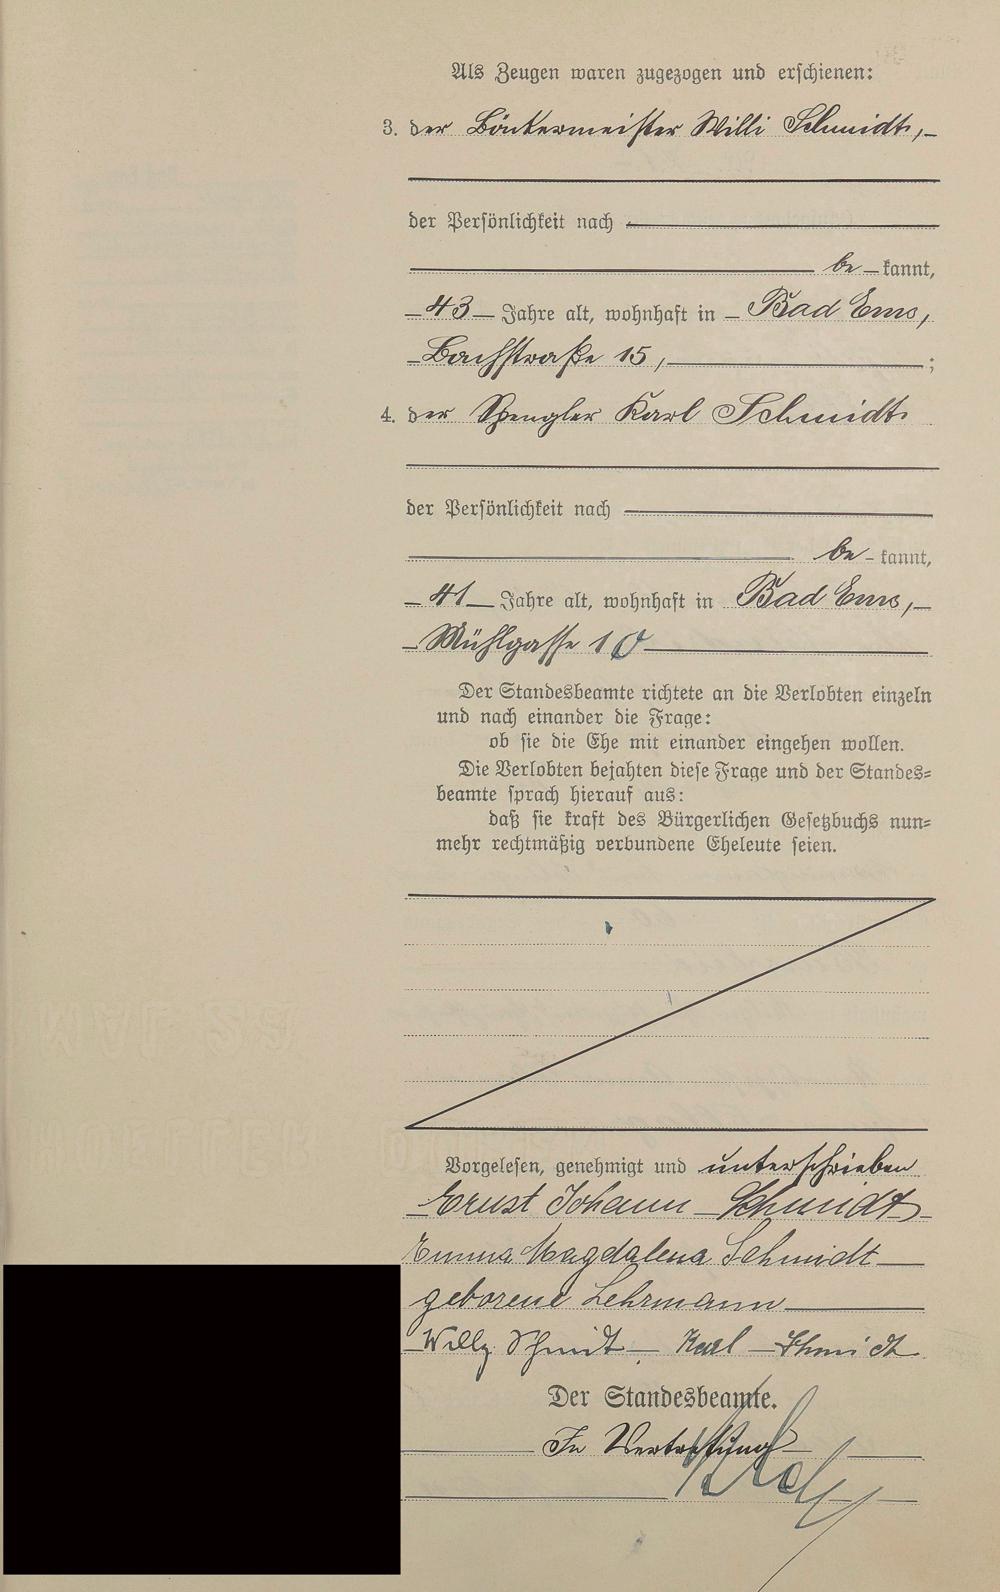 Als Zeugen waren zugezogen und erschienen:
3. der Bäckermeister Willi Schmidt,
der Persönlichkeit nach
be kannt,
43 Jahre alt, wohnhaft in Bad Ems,
Bachstraße 15, ;
4. der Spengler Karl Schmidt
der Persönlichkeit nach
be kannt,
41 Jahre alt, wohnhaft in Bad Ems,
Mühlgasse 10
Der Standesbeamte richtete an die Verlobten einzeln
und nach einander die Frage:
ob sie die Ehe mit einander eingehen wollen.
Die Verlobten bejahten diese Frage und der Standes=
beamte sprach hierauf aus:
daß sie kraft des Bürgerlichen Gesetzbuchs nun=
mehr rechtmäßig verbundene Eheleute seien.
Vorgelesen, genehmigt und unterschrieben
Ernst Johann Schmidt
Emma Magdalena Schmidt
geborene Lehrmann
Willy Schmidt, Karl Schmidt
Der Standesbeamte.
In Vertretung